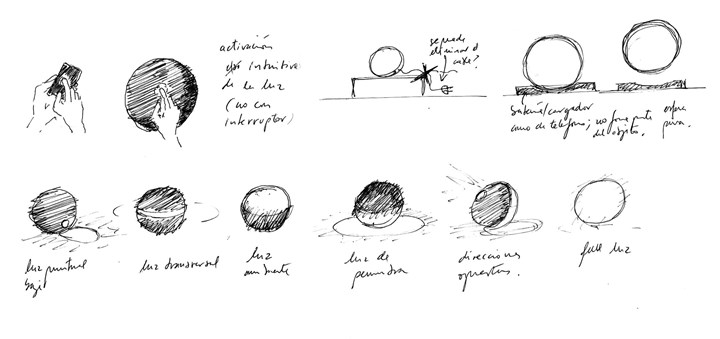 activación
intuitiva
de la luz
(no con
interruptor)
se puede
eliminar el
cable?
batería/cargador
como de teléfono; no forma parte
del objeto.
esfera
pura.
luz puntual
baja
luz transversal
luz
ambiente
luz de
penumbra
direcciones
opuestas.
full luz